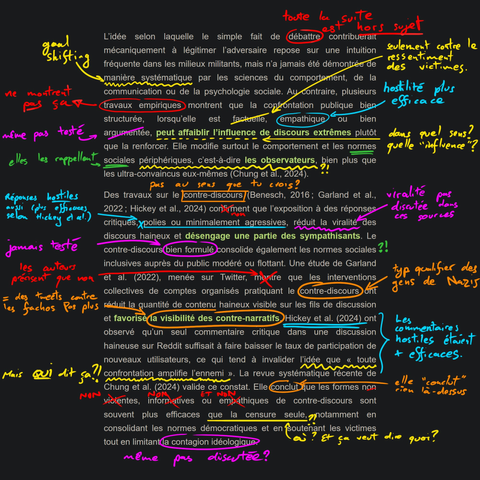 toute la suite
est hors sujet
L'idée selon laquelle le simple fait de débattre contribuerait
mécaniquement à légitimer l'adversaire repose sur une intuition
fréquente dans les milieux militants, mais n'a jamais été démontrée de
manière systématique par les sciences du comportement, de la
communication ou de la psychologie sociale. Au contraire, plusieurs
travaux empiriques montrent que la confrontation publique bien
structurée, lorsqu'elle est factuelle, empathique ou bien
argumentée, peut affaiblir l'influence de discours extrêmes plutôt
que la renforcer. Elle modifie surtout le comportement et les normes
sociales périphériques, c'est-à-dire les observateurs, bien plus que
les ultra-convaincus eux-mêmes (Chung et al., 2024).
goal
shifting
ne montrent
pas ça
même pas testé
elles les rappellent
seulement contre le
ressentiment
des victimes.
hostilité plus
efficace
dans quel sens?
quelle "influence"?
?!
pas au sens que tu crois?
Des travaux sur le contre-discours (Benesch, 2016 ; Garland et al.,
2022 ; Hickey et al., 2024) confirment que l'exposition à des réponses
critiques, polies ou minimalement agressives, réduit la viralité des
discours haineux et désengage une partie des sympathisants. Le
contre-discours bien formulé consolide également les normes sociales
inclusives auprès du public modéré ou flottant. Une étude de Garland
et al. (2022), menée sur Twitter, montre que les interventions
collectives de comptes organisés pratiquant le contre-discours ont
réduit la quantité de contenu haineux visible sur les fils de discussion
et favorise la visibilité des contre-narratifs. Hickey et al. (2024) ont
observé qu'un seul commentaire critique dans une discussion
haineuse sur Reddit suffisait à faire baisser le taux de participation de
nouveaux utilisateurs, ce qui tend à invalider l'idée que « toute
confrontation amplifie l'ennemi ». La revue systématique récente de
Chung et al. (2024) valide ce constat. Elle conclut que les formes non
violentes, informatives ou empathiques de contre-discours sont
souvent plus efficaces que la censure seule, notamment en
consolidant les normes démocratiques et en soutenant les victimes
tout en limitant la contagion idéologique.
non
Réponses hostiles
aussi (plus efficaces
selon Hickey et al.)
jamais testé
les auteurs
pensent que non
= des tweets contre
les fachos pas plus
Mais QUI dit ça?!
NON
NON
ET NON
viralité pas
discutée dans
ces sources
?!
typ qualifier des
gens de Nazis
Les
commentaires
hostiles étaient
+ efficaces.
elle "conclut"
rien là-dessus
?!
où? Et ça veut dire quoi?
même pas discutée?